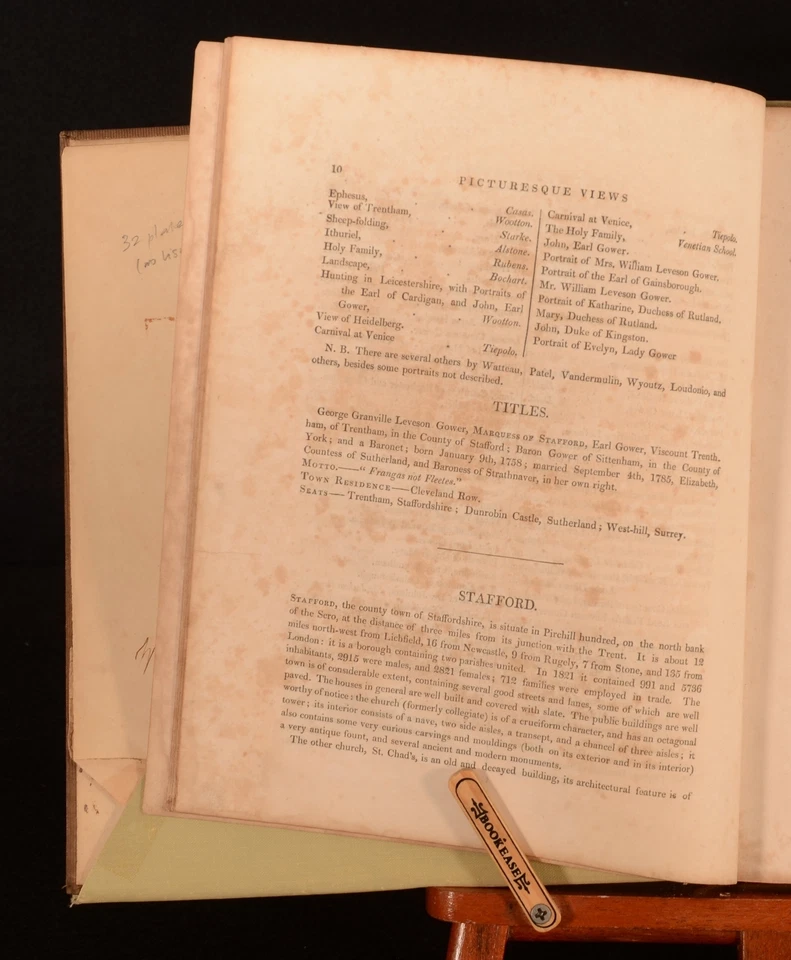 10
PICTURESQUE VIEWS
Ephesus, Casus.
View of Trentham, Wootton.
Sheep-folding, Starke.
Ithuriel, Alstone.
Holy Family, Rubens.
Landscape, Bochart.
Hunting in Leicestershire, with Portraits of
the Earl of Cardigan, and John, Earl
Gower, Wootton.
View of Heidelberg.
Carnival at Venice Tiepolo,
Carnival at Venice, Tiepolo.
The Holy Family, Venetian School.
John, Earl Gower.
Portrait of Mrs. William Leveson Gower.
Portrait of the Earl of Gainsborough.
Mr. William Leveson Gower.
Portrait of Katharine, Duchess of Rutland.
Mary, Duchess of Rutland.
John, Duke of Kingston.
Portrait of Evelyn, Lady Gower
N. B. There are several others by Watteau, Patel, Vandermulin, Wyoutz, Loudonio, and
others, besides some portraits not described.
TITLES.
George Granville Leveson Gower, MARQUESS OF STAFFORD, Earl Gower, Viscount Trent-
ham, of Trentham, in the County of Stafford; Baron Gower of Sittenham, in the County of
York; and a Baronet; born January 9th, 1758; married September 4th, 1785, Elizabeth,
Countess of Sutherland, and Baroness of Strathnaver, in her own right.
MOTTO.—"Frangas not Flectes."
TOWN RESIDENCE—Cleveland Row.
SEATS—Trentham, Staffordshire; Dunrobin Castle, Sutherland; West-hill, Surrey.
STAFFORD.
STAFFORD, the county town of Staffordshire, is situate in Pirehill hundred, on the north bank
of the Sero, at the distance of three miles from its junction with the Trent. It is about 12
miles north-west from Lichfield, 16 from Newcastle, 9 from Rugely, 7 from Stone, and 135 from
London: it is a borough containing two parishes united. In 1821 it contained 991 and 5736
inhabitants, 2915 were males, and 2821 females; 712 families were employed in trade. The
town is of considerable extent, containing several good streets and lanes, some of which are well
paved. The houses in general are well built and covered with slate. The public buildings are well
worthy of notice: the church (formerly collegiate) is of a cruciform character, and has an octagonal
tower; its interior consists of a nave, two side aisles, a transept, and a chancel of three aisles; it
also contains some very curious carvings and mouldings (both on its exterior and in its interior)
a very antique fount, and several ancient and modern monuments.
The other church, St. Chad's, is an old and decayed building, its architectural feature is of
32
BOOKEASE